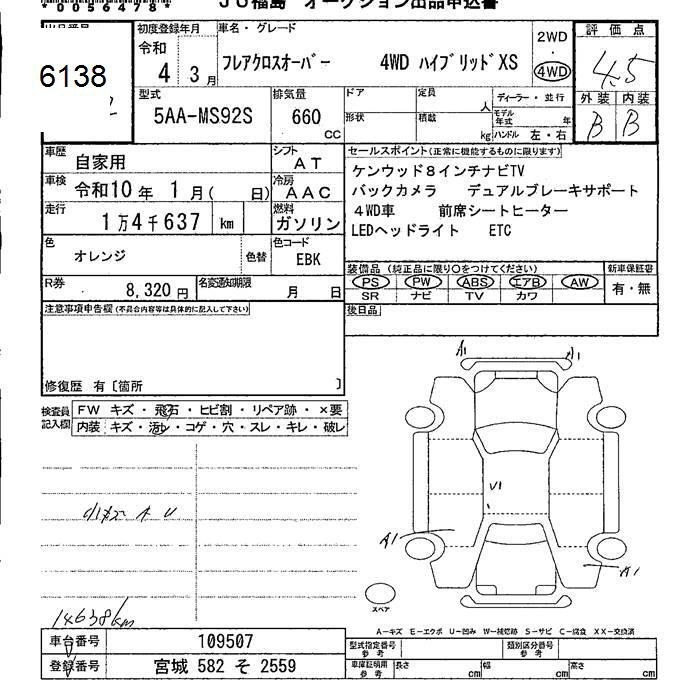 *0056478*
JU福島 オークション出品申込書
出品番号
6138
初度登録年月
令和
4 3月
車名・グレード
フレアクロスオーバー 4WD ハイブリッドXS
2WD
・
4WD
評価点
4.5
型式
5AA-MS92S
排気量
660
cc
ドア
定員
人
形状
積載
kg
ディーラー・並行
モデル年式 年
ハンドル 左・右
外装 内装
B B
車歴
自家用
シフト
AT
車検
令和10年 1月( 日)
冷房
AAC
走行
1万4千637 km
燃料
ガソリン
色
オレンジ
色替
色コード
EBK
R券
8,320円
名変通知期限
月 日
セールスポイント(正常に機能するものに限ります)
ケンウッド8インチナビTV
バックカメラ デュアルブレーキサポート
4WD車 前席シートヒーター
LEDヘッドライト ETC
装備品(純正品に限り○をつけてください)
新車保証書
PS PW ABS エアB AW
有・無
SR ナビ TV カワ
後日品
注意事項申告欄(不具合内容等は具体的に記入して下さい)
修復歴 有〔箇所 〕
検査員記入欄
FW キズ・飛石・ヒビ割・リペア跡・×要
内装 キズ・汚レ・コゲ・穴・スレ・キレ・破レ
A1 A1
V1
A1
A1
スペア
14638km
A-キズ E-エクボ U-凹み W-補修跡 S-サビ C-腐食 XX-交換済
車台番号 109507
登録番号 宮城 582 そ 2559
型式指定番号
参考
類別区分番号
参考
車庫証明用
参考
長さ cm
幅 cm
高さ cm